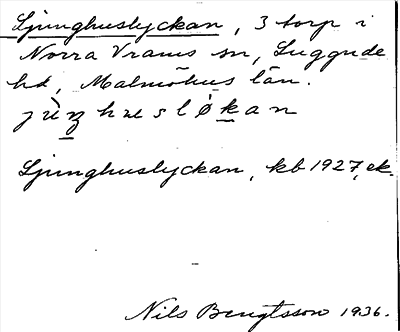 Ljunghuslyckan, 3 torp i
Norra Vrams sn, Luggude
hd, Malmöhus län.
Ljunghuslyckan, kb 1927, ek.
Nils Bengtsson 1936.